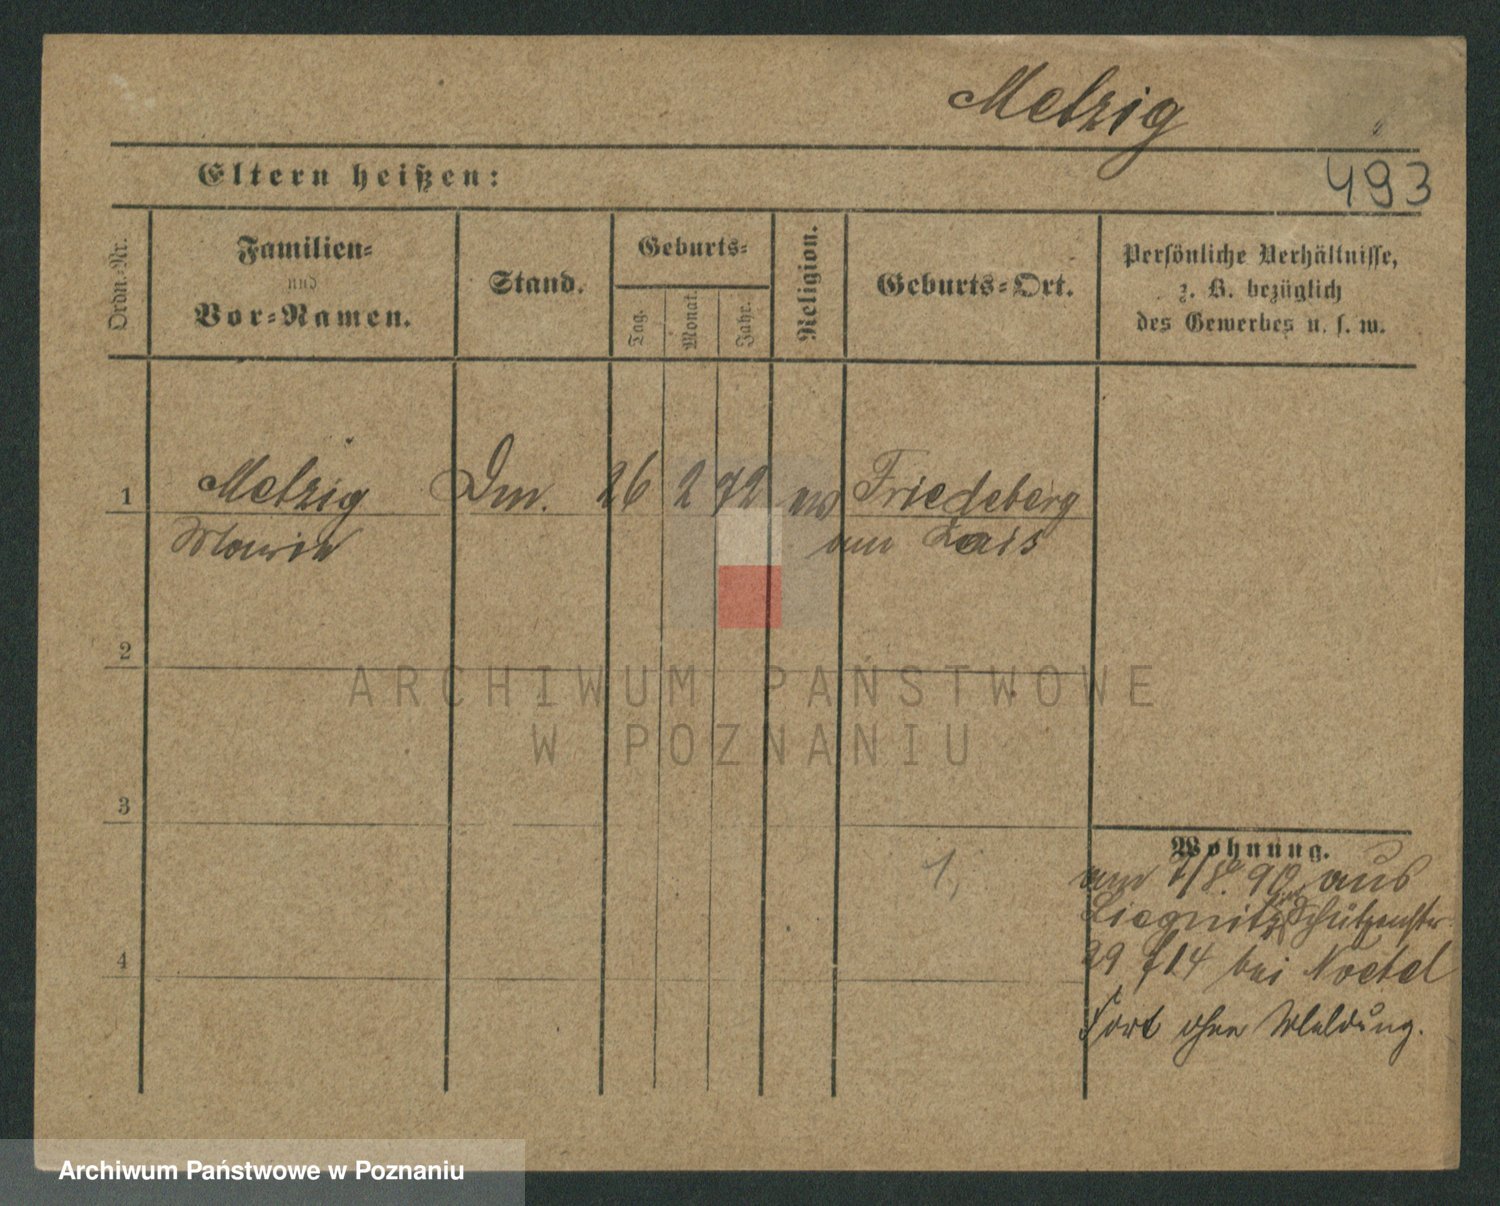 Metzig
493
Eltern heißen:
Ordn.-Nr.
Familien-
und
Vor-Namen.
Stand.
Geburts-
Tag.
Monat.
Jahr.
Religion.
Geburts-Ort.
Persönliche Verhältnisse,
z. B. bezüglich
des Gewerbes u. s. w.
1 Metzig 26 2 72 Friedeberg
am
2
3
4
1,
Wohnung.
am 7/8. 90 aus
Liegnitz Schützenstr.
29 bei Noetel
Fort ohne Meldung.
ARCHIWUM PAŃSTWOWE
W POZNANIU
Archiwum Państwowe w Poznaniu